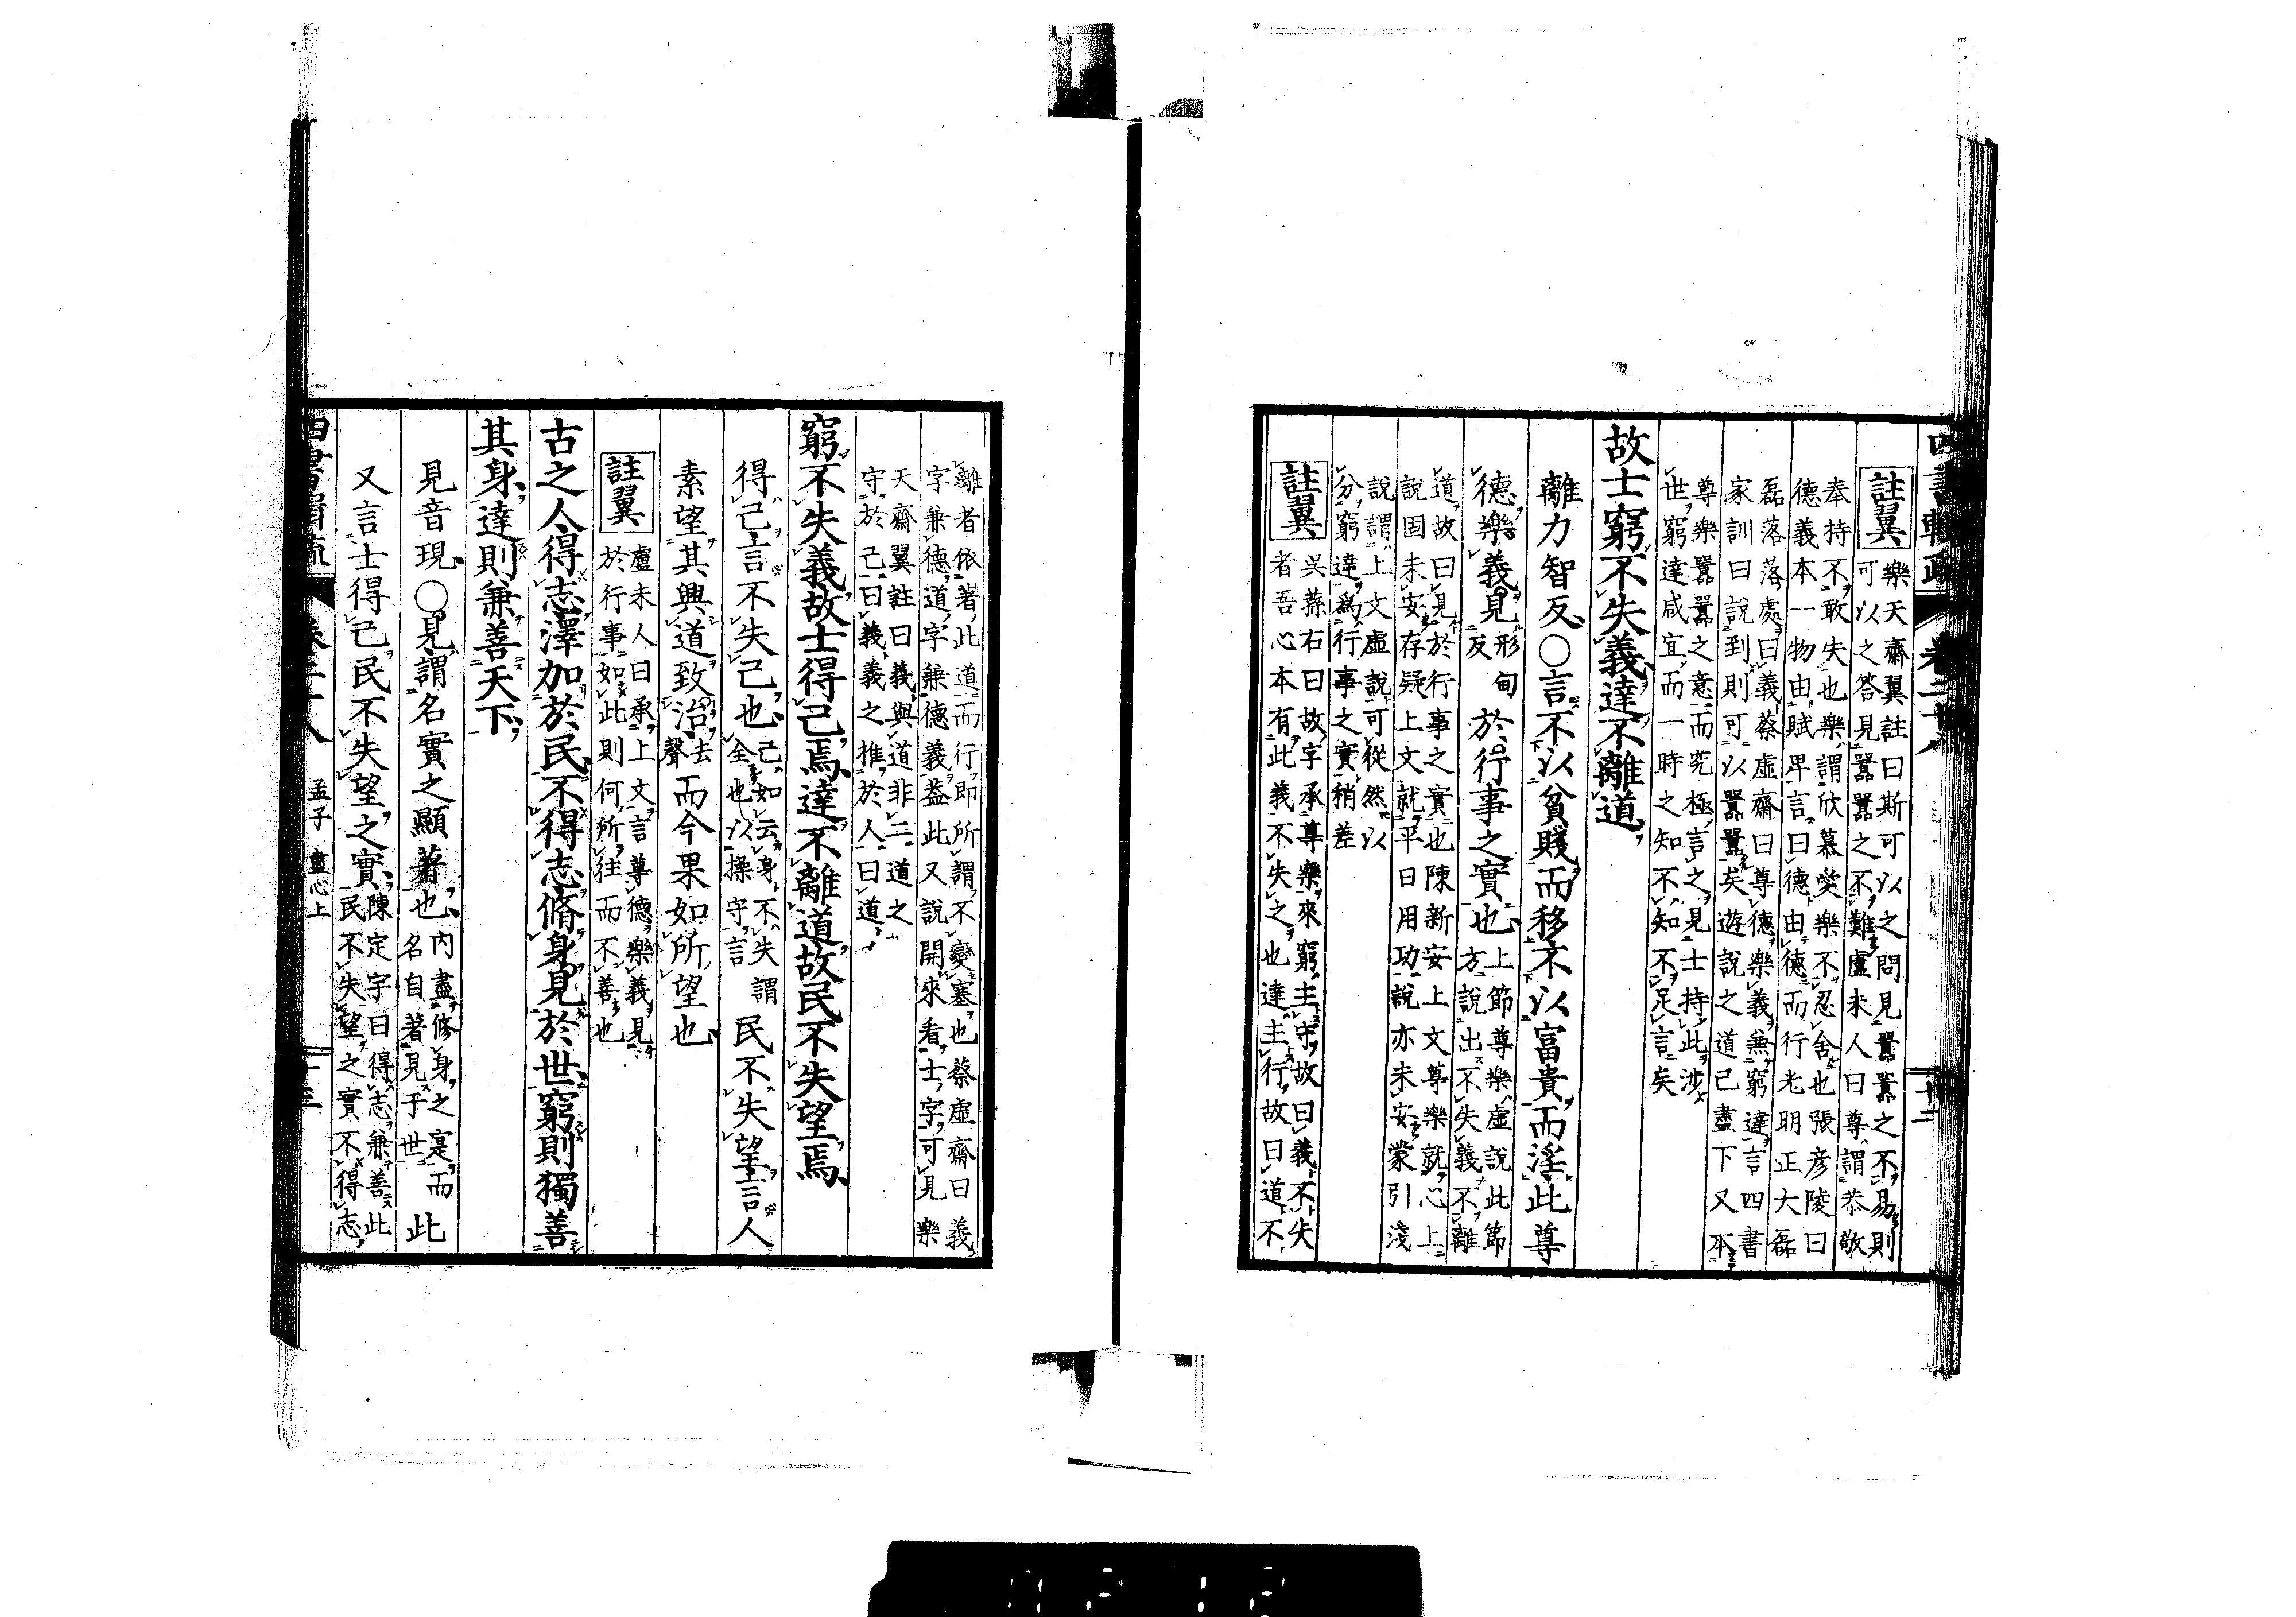 四書輯疏 卷二十八 十二
註翼
樂天齋翼註曰斯可以之問見囂囂之不易則
可以之答見囂囂之不難盧未人曰尊謂恭敬
奉持不敢失也樂謂欣慕愛樂不忍舍也張彥陵曰
德義本一物由賦畀言曰德由德而行光明正大磊
磊落落處曰義蔡虛齋曰尊德樂義兼窮達言四書
家訓曰說到則可以囂囂矣遊說之道已盡下又本
尊樂囂囂之意而究極言之見士持此涉
世窮達咸宜而一時之知不知不足言矣
故士窮不失義達不離道
離力智反○言不以貧賤而移不以富貴而淫此尊
德樂義見形甸反於行事之實也上節尊樂虛說此節方說出不失義不離
道故曰見於行事之實也陳新安上文尊樂就心上
說固未安存疑上文就平日用功說亦未安蒙引淺
說謂上文虛說可從然以
分窮達為行事之實稍差
註翼
吳蓀右曰故字承尊樂來窮主守故曰義不失
者吾心本有此義不失之也達主行故曰道不
離者依著此道而行即所謂不變塞也蔡虛齋曰義
字兼德道字兼德義蓋此又說開來看士字可見樂
天齋翼註曰義與道非二道之
守於己曰義義之推於人曰道
窮不失義故士得己焉達不離道故民不失望焉
得己言不失己也己如云身不失謂全也以操守言民不失望言人
素望其興道致治去聲而今果如所望也
註翼
盧未人曰承上文言尊德樂義見
於行事如此則何所往而不善也
古之人得志澤加於民不得志脩身見於世窮則獨善
其身達則兼善天下
見音現○見謂名實之顯著也內盡修身之寔而名自著見于世此
又言士得己民不失望之實陳定宇曰得志兼善此民不失望之實不得志
四書輯疏 卷二十八 孟子 盡心上 十三